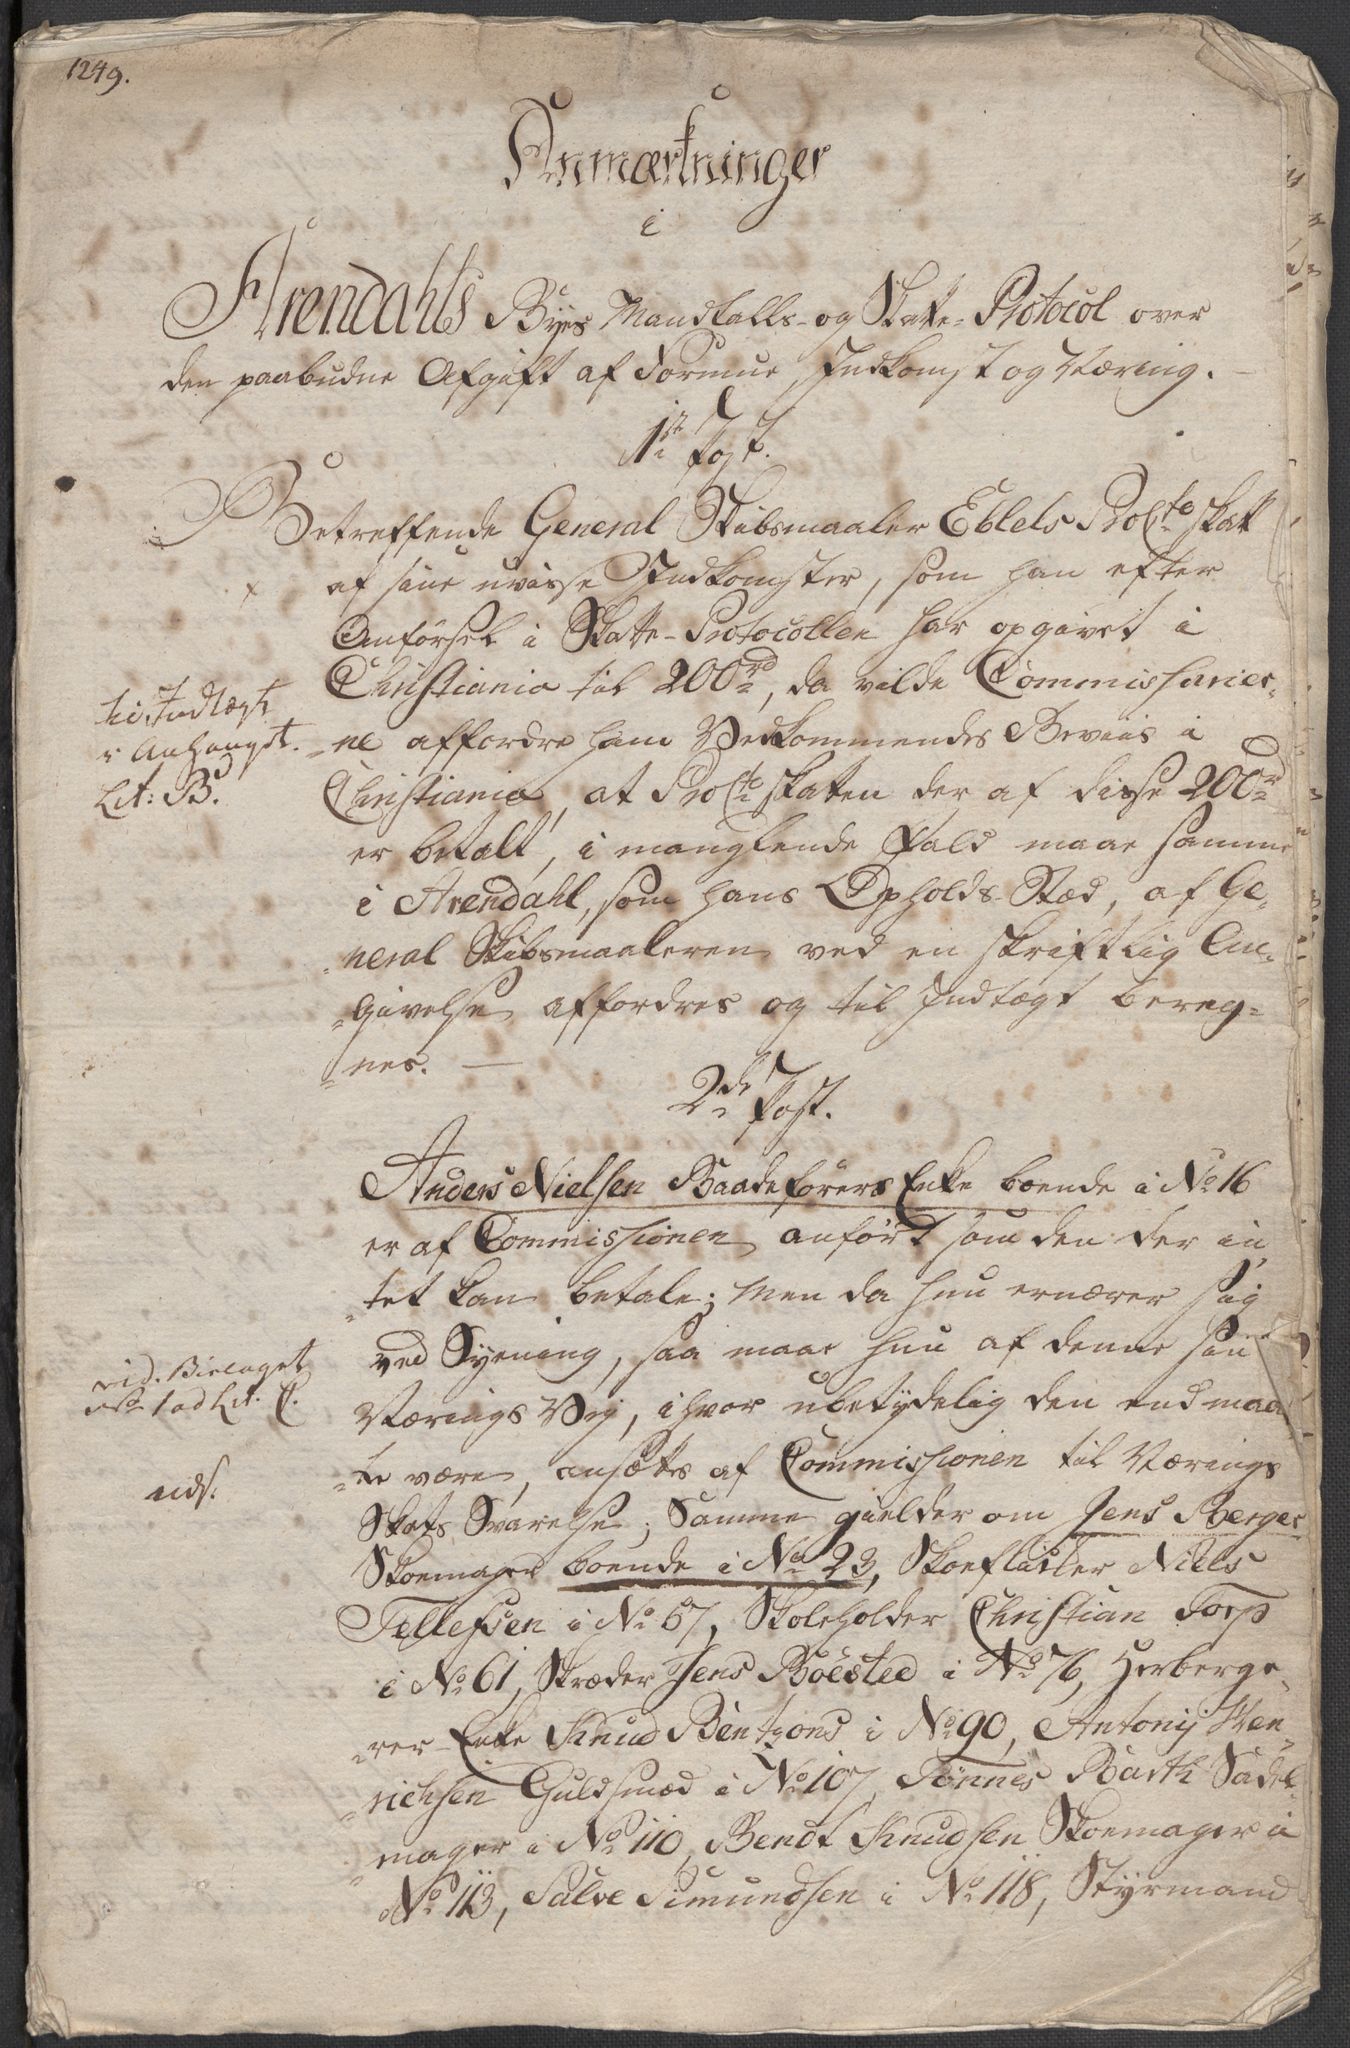 1249.
Anmærkninger
i
Arendahls Byes Mandtalls- og Skatte-Protocol over
den paabudne Afgift af Formue, Indkomst og Næring.
1ste Post.
Betreffende General Skibsmaaler Eblels ProCto skat
af sine uvisse Indkomster, som han efter
Anförsel i Skatte-Protocollen har opgivet i
Christiania til 200rd, da vilde Commissharier-
ne affordre ham Vedkommendes Beviis i
Christiania, at ProCto skatten der af disse 200rd
er betalt, i manglende Fald maae samme
i Arendahl, som hans Opholds-Stæd, af Ge-
neral Skibsmaaleren ved en skriftlig An-
givelse affordres og til Indtægt bereg-
nes.
til Indtægt
i Anhanget
Lit: B.
2den Post.
Anders Nielsen Baadeförers Enke boende i No 16
er af Commisshionen anfört som den der in-
tet kan betale; Men da hun ernærer sig
ved Syening, saa maae hun af denne sin
Nærings Vej, ihvor ubetydelig den end maa
te være, ansættes af Commisshionen til Nærings
Skats Svarelse; Samme gielder om Jens Berger
Skoemager boende i No 23, Skoeflikker Niels
Tellefsen i No 57, Skoleholder Christian Torp
i No 61, Skræder Jens Böested i No 76, Herberge-
rer-Enke Knud Bentzons i No 90, Antonij Hen-
richsen Guldsmed i No 107, Tönnes Barth Sadel-
mager i No 110, Bendt Knudsen Skoemager i
No 113, Salve Simundsen i No 118, Styrmand
vid. Bielaget
No 1 ad Lit. C.
uds.